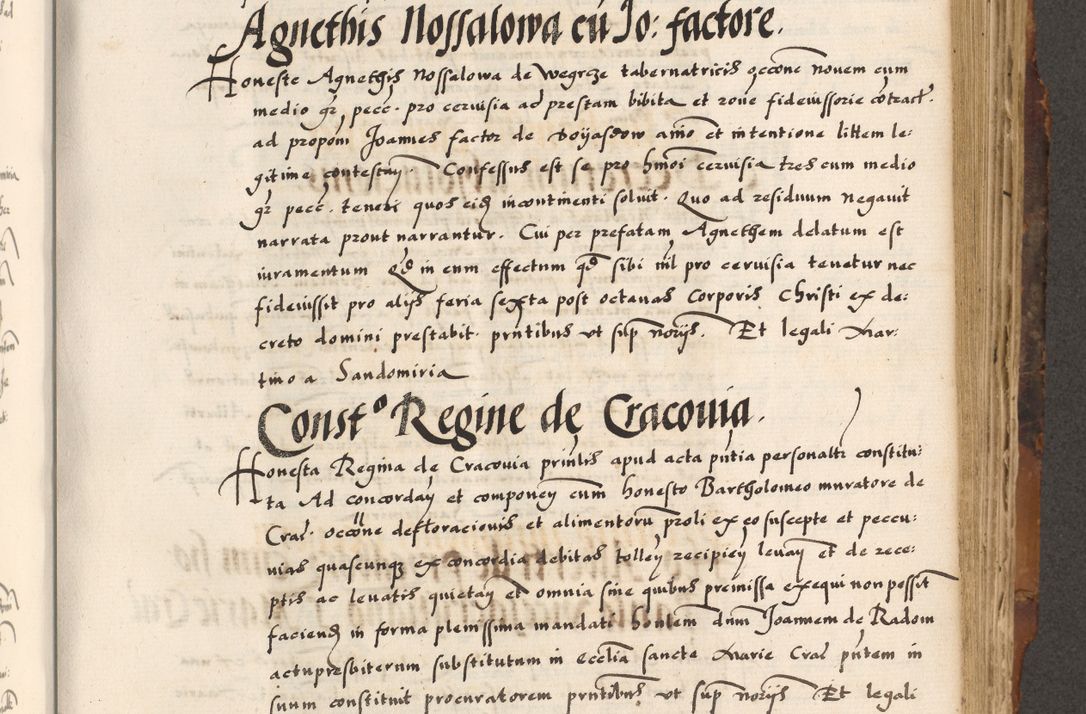 Agnethis Nossalowa cū Jo: factore.
Honeste Agnethis Nossalowa de Wegrze tabernatricis occōne novem cum
medio gr̄ pecc̄. pro cervisia ad prestam bibita et rōne fideiussorie cōtract.
ad propōm Joannes factor de Woyasdow animo et intentione littem le:
gitime contestan̄. Confessus est se pro hmōi cervisia tres cum medio
gr̄ pecc̄. teneri quos eid incontinenti soluit. Quo ad residuum negavit
narrata prout narrantur. Cui per prefatam Agnethem delatum est
iuramentum Qd in eum effectum qd sibi nil pro cervisia tenetur nec
fideiussit pro alijs feria sexta post octavas Corporis Christi ex de:
creto domini prestabit. pn̄tibus vt sup̄ norijs. Et legali Mar:
tino a Sandomiria
Const° Regine de Cracouia.
Honesta Regina de Cracouia prin̄lis apud acta pn̄tia personalr̄ constitu:
ta Ad concordan̄ et componen̄ cum honesto Bartholomeo muratore de
Crac̄. occōne deflorationis et alimentorū proli ex eo suscepte et peccu:
nias quascunq̄ ex concordia debitas tollen̄ recipien̄ levan̄ et de rece:
ptis ac levatis quietan̄ et omnia sine quibus premissa exequi non possūt
faciend in forma plenissima mandati hon̄lem dnm̄ Joannem de Radom
actu presbiterum substitutum in Ecclīa sancte Marie Crac̄ pn̄tem in
suum constituit procuratorem pn̄tibus vt sup̄ norijs Et legali